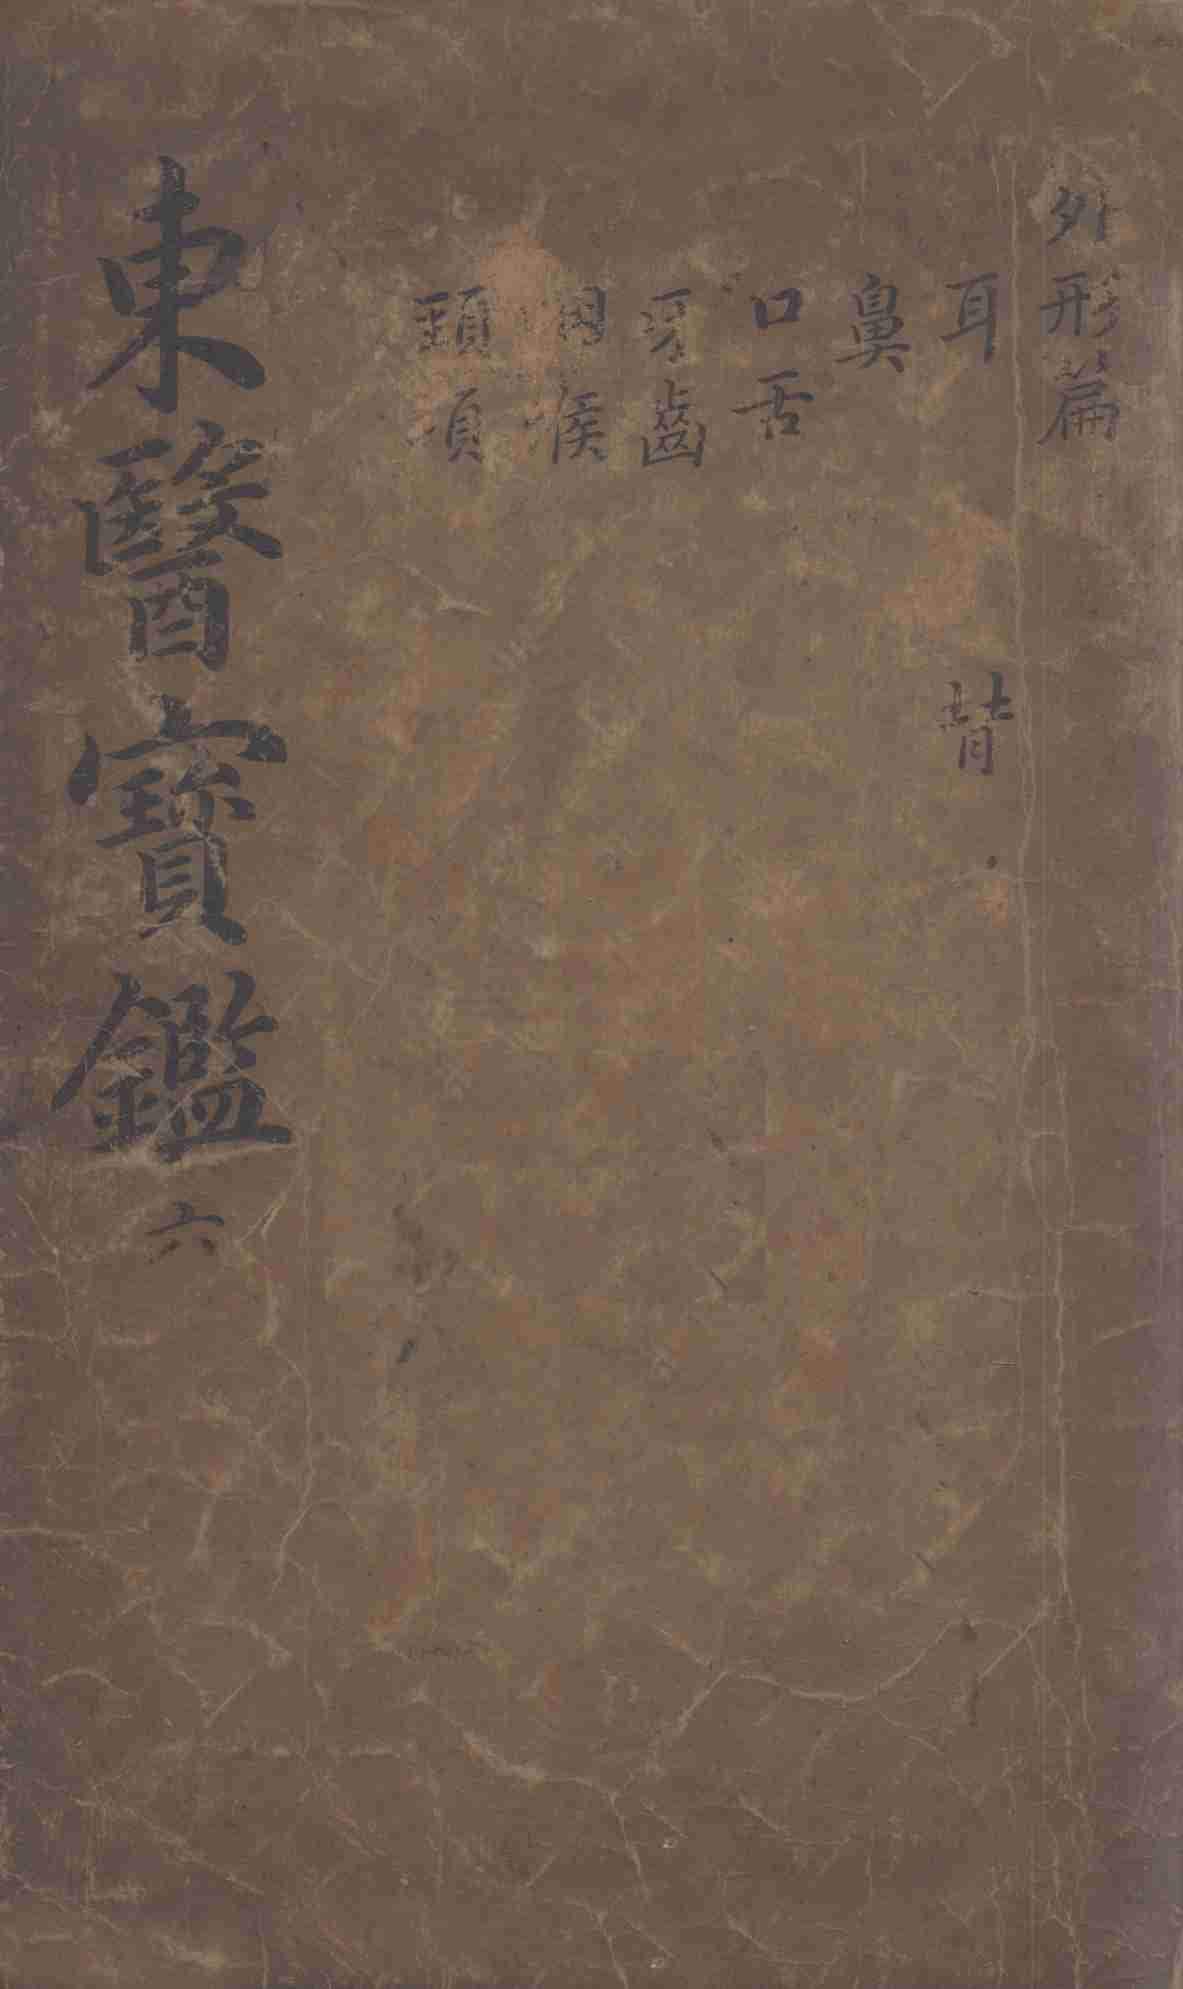 外形篇
耳
背
鼻
口舌
牙齒
咽喉
頸項
東醫寶鑑 六